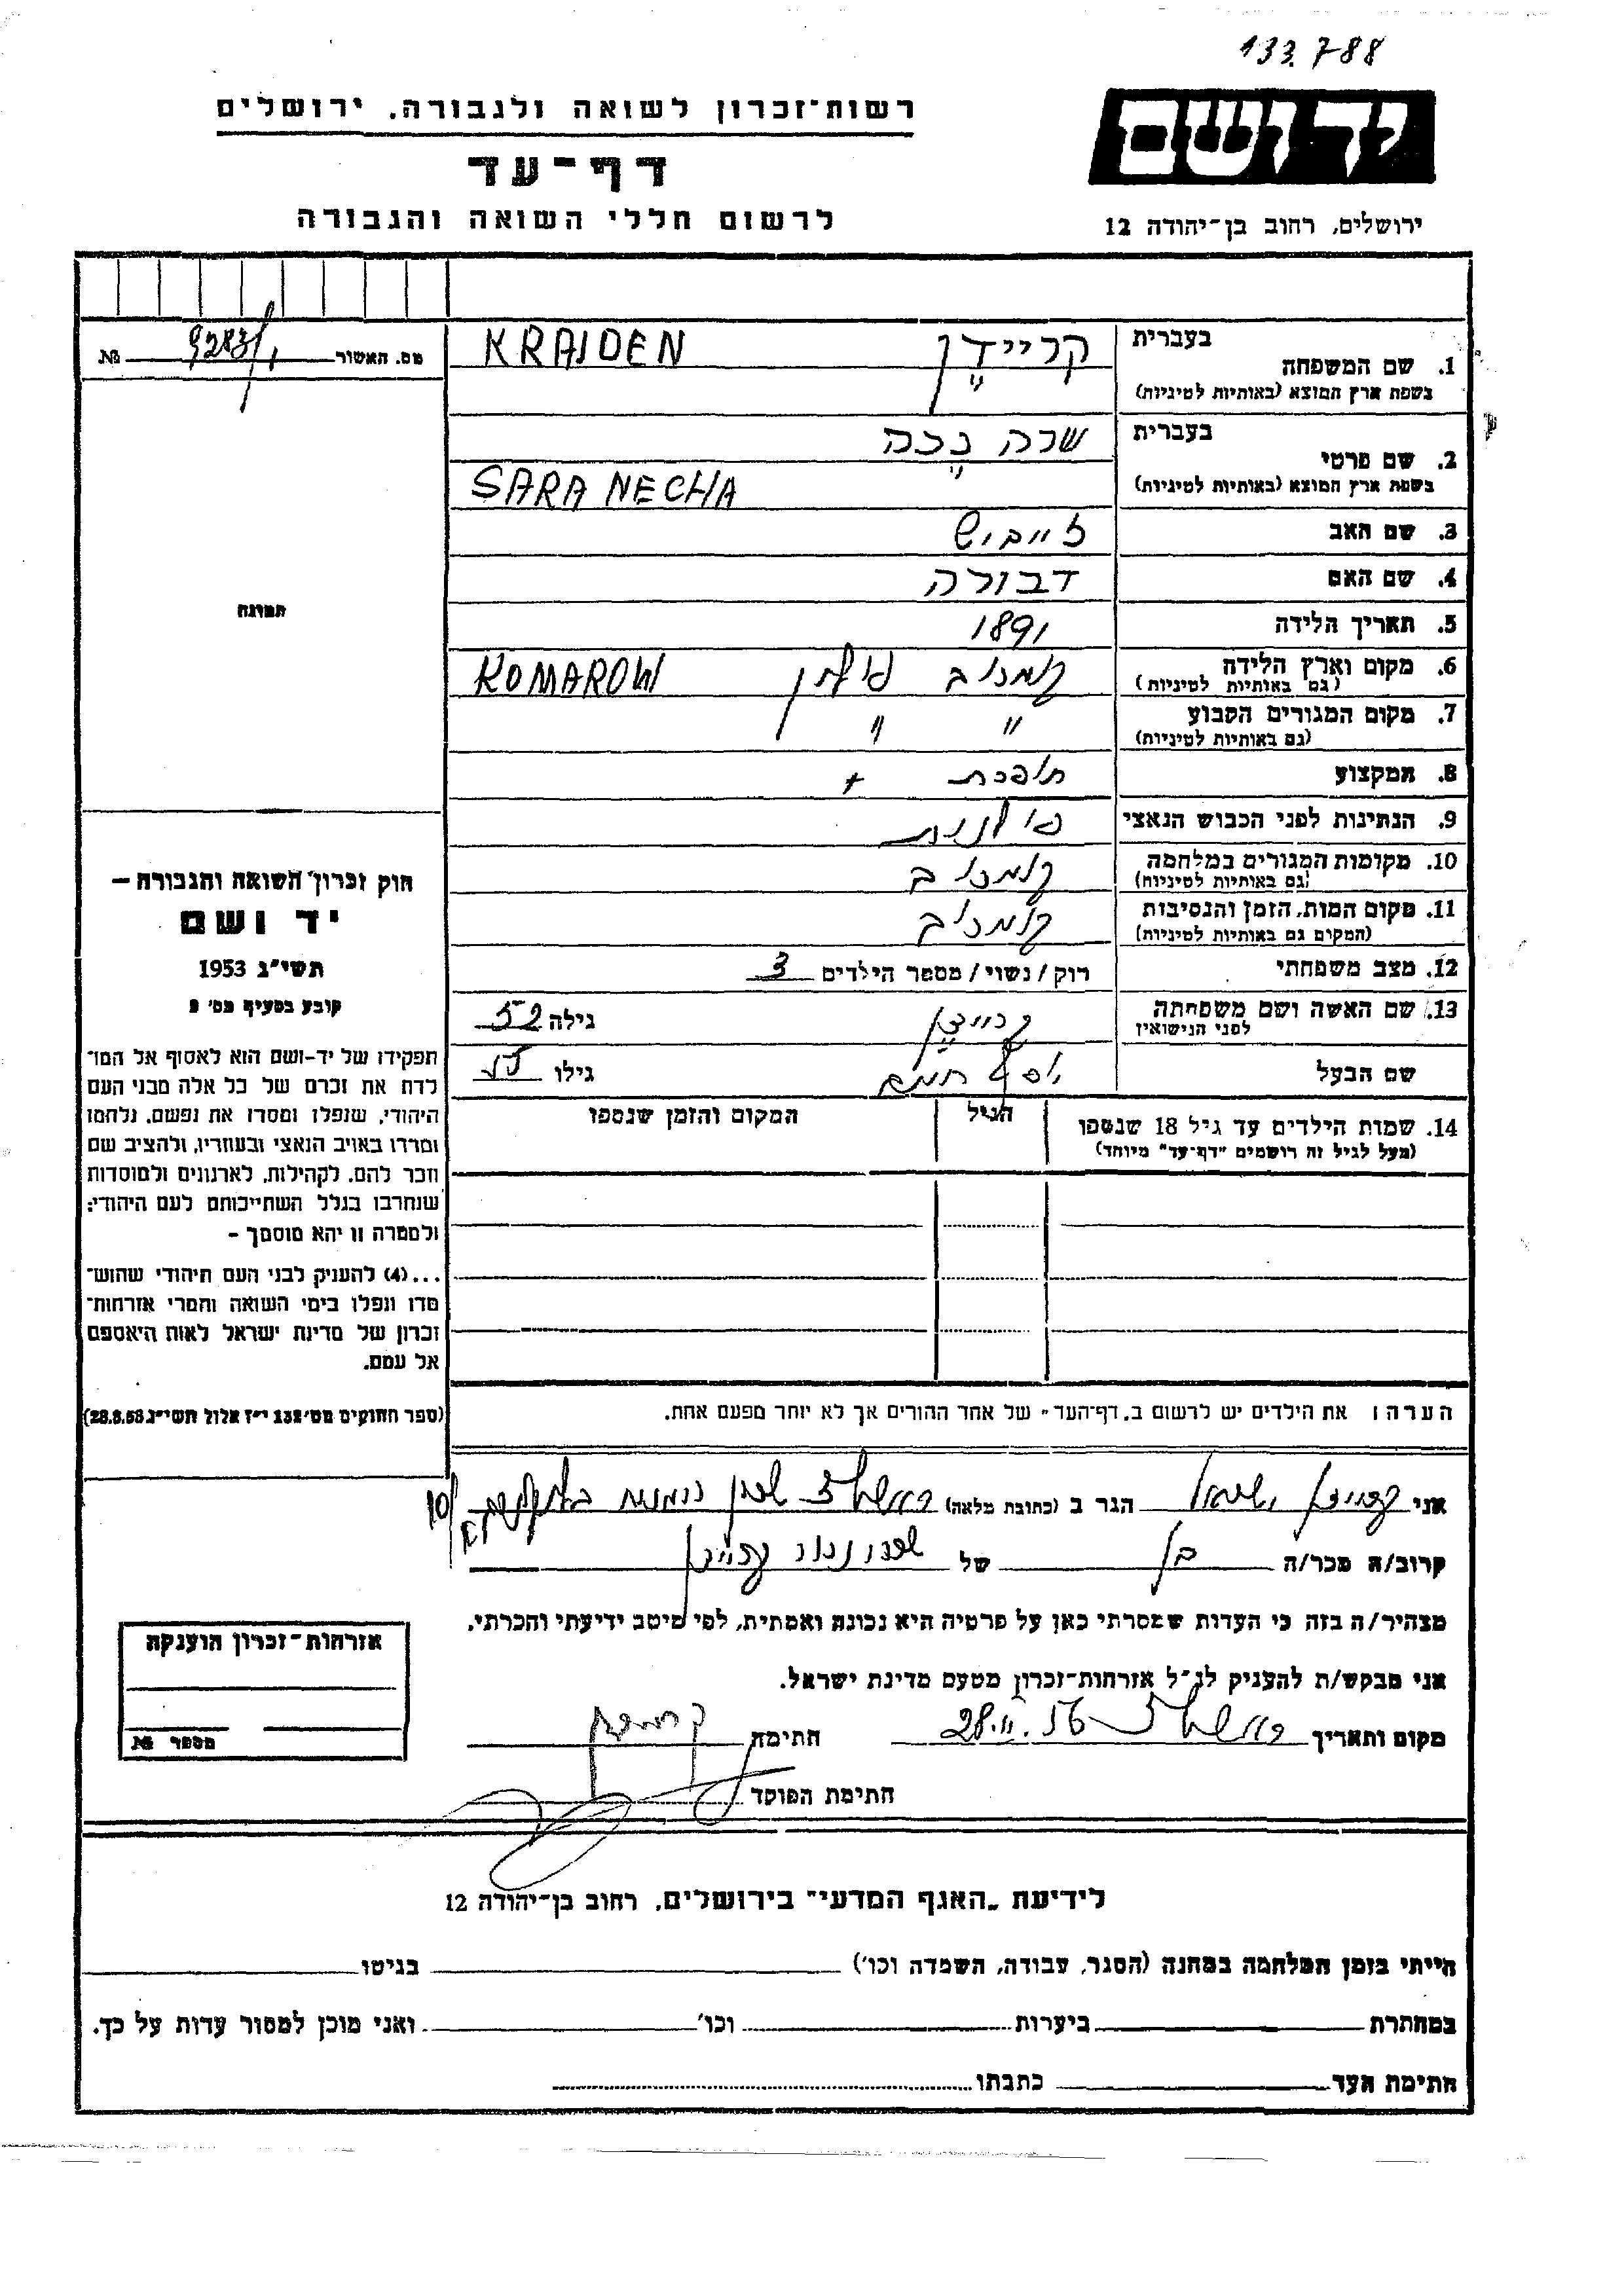 133.788
רשות־זכרון לשואה ולגבורה, ירושלים
יד ושם
דף־עד
לרשום חללי השואה והגבורה
ירושלים, רחוב בן־יהודה 12
מס. האשור 9283/1 №
1. שם המשפחה
בעברית
קריידן
KRAJDEN
בשפת ארץ המוצא (באותיות לטיניות)
2. שם פרטי
בעברית
שרה נכה
בשפת ארץ המוצא (באותיות לטיניות)
SARA NECHA
3. שם האב
לייביש
4. שם האם
דבורה
5. תאריך הלידה
1891
6. מקום וארץ הלידה
(גם באותיות לטיניות)
קמרוב פולין KOMAROW
7. מקום המגורים הקבוע
(גם באותיות לטיניות)
" "
8. המקצוע
תופרת +
9. הנתינות לפני הכבוש הנאצי
פולנית
10. מקומות המגורים במלחמה
(גם באותיות לטיניות)
קמרוב
11. מקום המות, הזמן והנסיבות
(המקום גם באותיות לטיניות)
קמרוב
12. מצב משפחתי
רוק/נשוי/מספר הילדים 3
13. שם האשה ושם משפחתה
לפני הנישואין
קריידן
גילה 52
שם הבעל
גילו
14. שמות הילדים עד גיל 18 שנספו
(מעל לגיל זה רושמים "דף־עד" מיוחד)
הגיל
המקום והזמן שנספו
תמונה
חוק זכרון השואה והגבורה –
יד ושם
תשי"ג 1953
קובע בסעיף מס' 2
תפקידו של יד-ושם הוא לאסוף אל המו־
לדת את זכרם של כל אלה מבני העם
היהודי, שנפלו ומסרו את נפשם, נלחמו
ומרדו באויב הנאצי ובעוזריו, ולהציב שם
וזכר להם, לקהילות, לארגונים ולמוסדות
שנחרבו בגלל השתייכותם לעם היהודי;
ולמטרה זו יהא מוסמך –
...(4) להעניק לבני העם היהודי שהוש־
מדו ונפלו בימי השואה והמרי אזרחות־
זכרון של מדינת ישראל לאות היאספם
אל עמם.
(ספר החוקים מס' 132 י"ז אלול תשי"ג 28.8.53)
הערה: את הילדים יש לרשום ב„דף־העד" של אחד ההורים אך לא יותר מפעם אחת.
אני קריידן ישראל הגר ב (כתובת מלאה)
קרוב/ה מכר/ה בן של קריידן
מצהיר/ה בזה כי העדות שמסרתי כאן על פרטיה היא נכונה ואמתית, לפי מיטב ידיעתי והכרתי.
אני מבקש/ת להעניק לנ"ל אזרחות־זכרון מטעם מדינת ישראל.
מקום ותאריך 28.11.56 חתימה
חתימת הפוקד
אזרחות־זכרון הוענקה
מספר №
לידיעת „האגף המדעי" בירושלים, רחוב בן־יהודה 12
הייתי בזמן המלחמה במחנה (הסגר, עבודה, השמדה וכו') בגיטו
במחתרת ביערות וכו' ואני מוכן למסור עדות על כך.
חתימת העד כתבתו